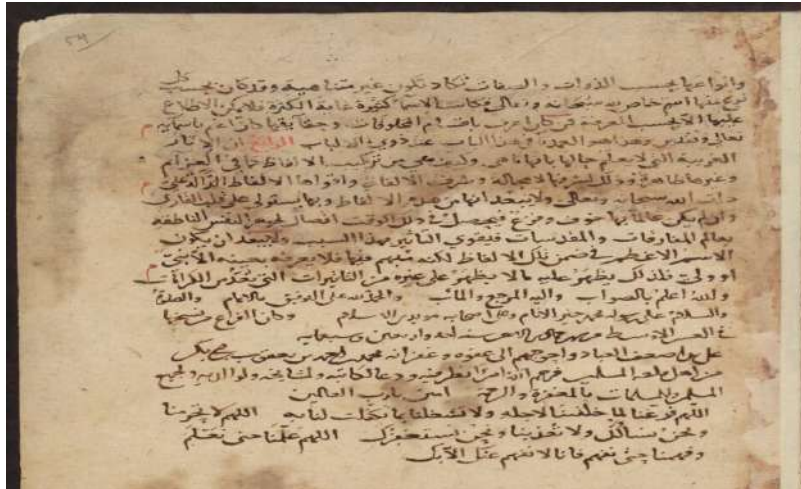 وانواعها بحسب الذوات والصفات تكاد تكون غير متناهية وقد كان بحسب كل
نوع منها اسم خاص به سبحانه وتعالى وكانت الاسما كثيرة غاية الكثرة فلا يمكن الاطلاع
عليها الا بحسب المعرفة فمن كان اعرف باقسام المخلوقات وحقايقها كان اعلم باسمايه
تعالى وتقدس وهذا هو العمدة في هذا الباب عند ذوي الالباب الرابع ان الاثار
الغريبة التي لا يعلم حالها بانها ماهي ولا عن هي من تركيب الالفاظ كما في العزايم
وغيرها ظاهرة وذلك لشرفها لا محالة وشرف الالفاظ واقواها الالفاظ الدالة على
ذات الله سبحانه وتعالى ولا يبعد انها من هذه الالفاظ وبها يستولي على قلب القارئ
وان لم يكن عالما بها خوف وفزع فيحصل في ذلك الوقت اتصال لجوهر النفس الناطقة
بعالم المفارقات والمقدسيات فيقوى التاثير بهذا السبب ولا يبعد ان يكون
الاسم الاعظم في ضمن تلك الالفاظ لكنه مبهم فيها فلا يعرفه بعينه الا نبي
او ولي فلذلك يظهر عليه ما لا يظهر على غيره من التاثيرات التي تعد من الكرامات
والله اعلم بالصواب واليه المرجع والمآب والحمد لله على التوفيق بالاتمام والصلاة
والسلام على رسوله محمد خير الانام وعلى اصحابه مويدي الاسلام وكان الفراغ من نسخها
في العشر الاوسط من شهر جمادى الاخر سنة احد واربعين وسبعمايه
على يد اضعف العباد واحوجهم الى عفوه وغفرانه محمد بن احمد بن يعقوب
من اهل ملة المسلمين فرحم الله امرا نظر فيه ودعا لكاتبه ولمشايخه ولوالديه ولجميع
المسلمين والمسلمات بالمغفرة والرحمة امين يا رب العالمين
اللهم فرغنا لما خلقتنا لاجله ولا تشغلنا بما تكفلت لنا به اللهم لا تحرمنا
ونحن نسالك ولا تعذبنا ونحن نستغفرك اللهم علمنا حتى نعلم
وفهمنا حتى نفهم فانا لا نفهم عنك الا بك